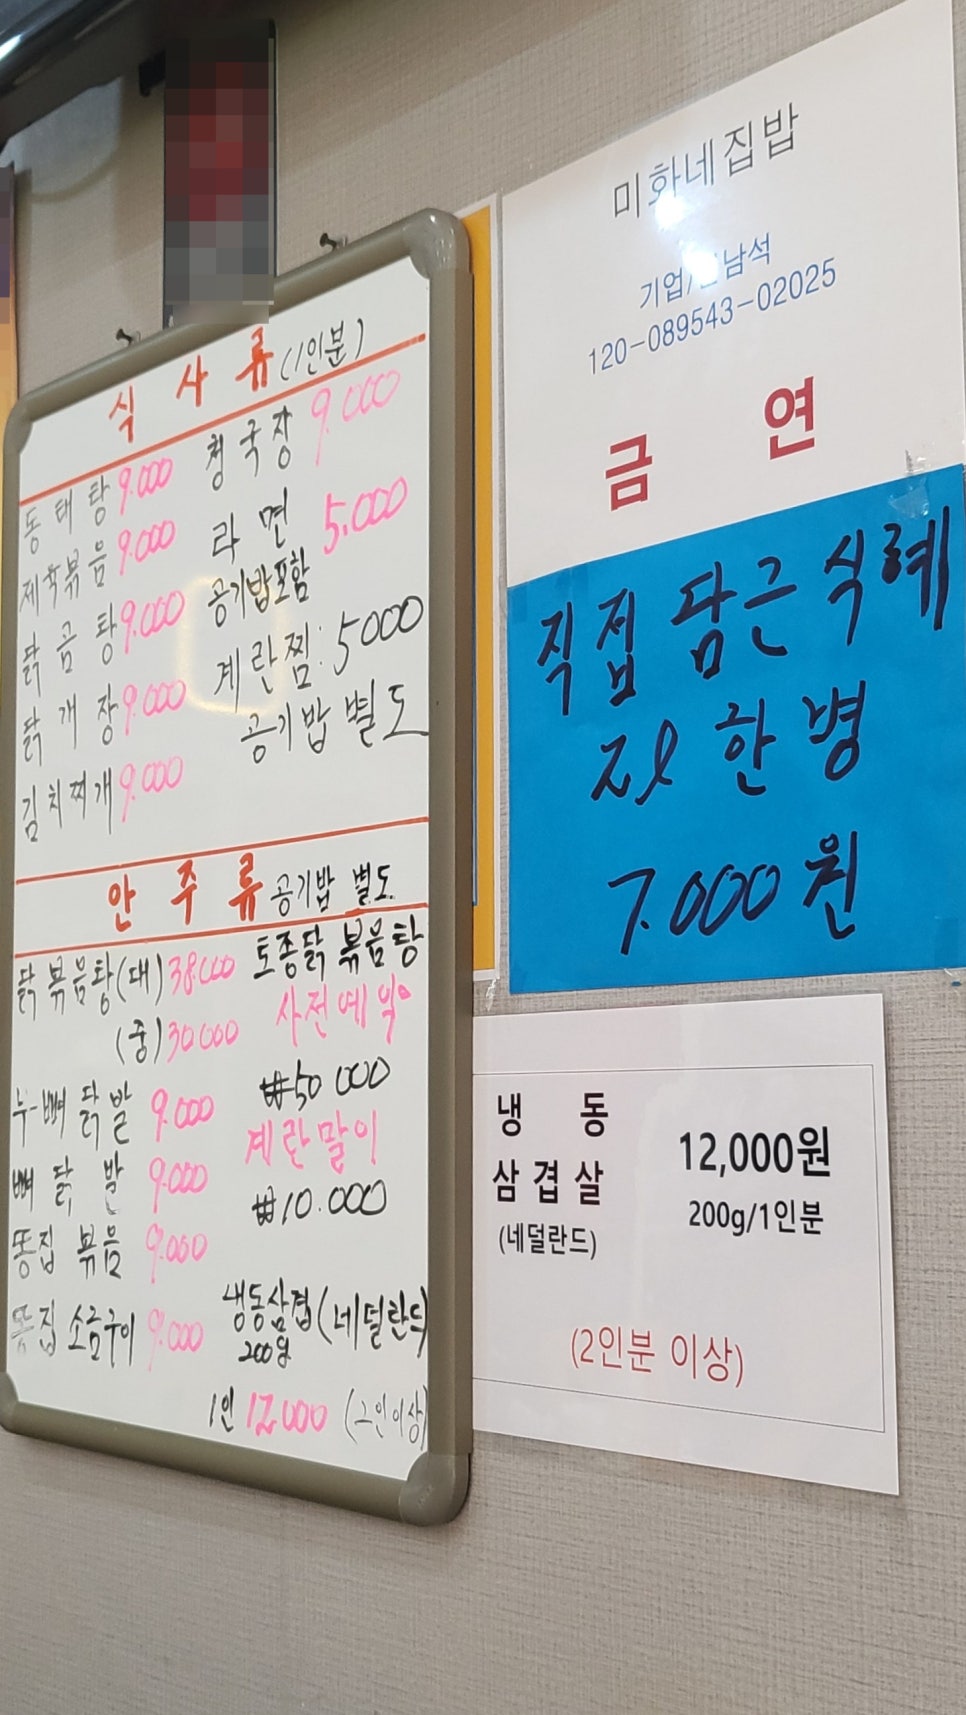 식 사 류 (1인분)
동태탕 9.000
제육볶음 9.000
닭곰탕 9.000
닭개장 9.000
김치찌개 9.000
청국장 9.000
라면 5.000
공기밥포함
계란찜: 5000
공기밥 별도
안 주 류 공기밥 별도
닭볶음탕(대) 38.000
(중) 30000
누-뼈 닭발 9.000
뼈 닭 발 9.000
똥집 볶음 9.000
똥집 소금구이 9.000
토종닭 볶음탕
사전예약
₩50 000
계란말이
₩10.000
냉동삼겹(네덜란드)
200g
1인 12.000 (2인이상)
미화네집밥
기업/ 남석
120-089543-02025
금 연
직접 담근식혜
1ℓ 한병
7.000원
냉 동
삼겹살
(네덜란드)
12,000원
200g/1인분
(2인분 이상)